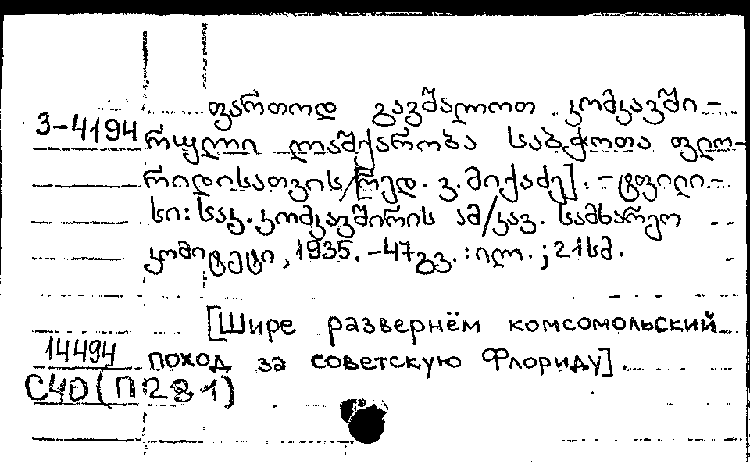 ფართოდ გავშალოთ კომკავში-
3-4194 რული ლაშქარობა საბჭოთა ფლო-
რიდისათვის/[რედ. ვ. მიქაძე]. - ტფილი-
სი: საკ. კომკავშირის ამ/კავ. სამხარეო
კომიტეტი, 1935. - 47 გვ. : ილ. ; 21 სმ.
[Шире развернём комсомольский
14494 поход за советскую Флориду].
С40(П281)